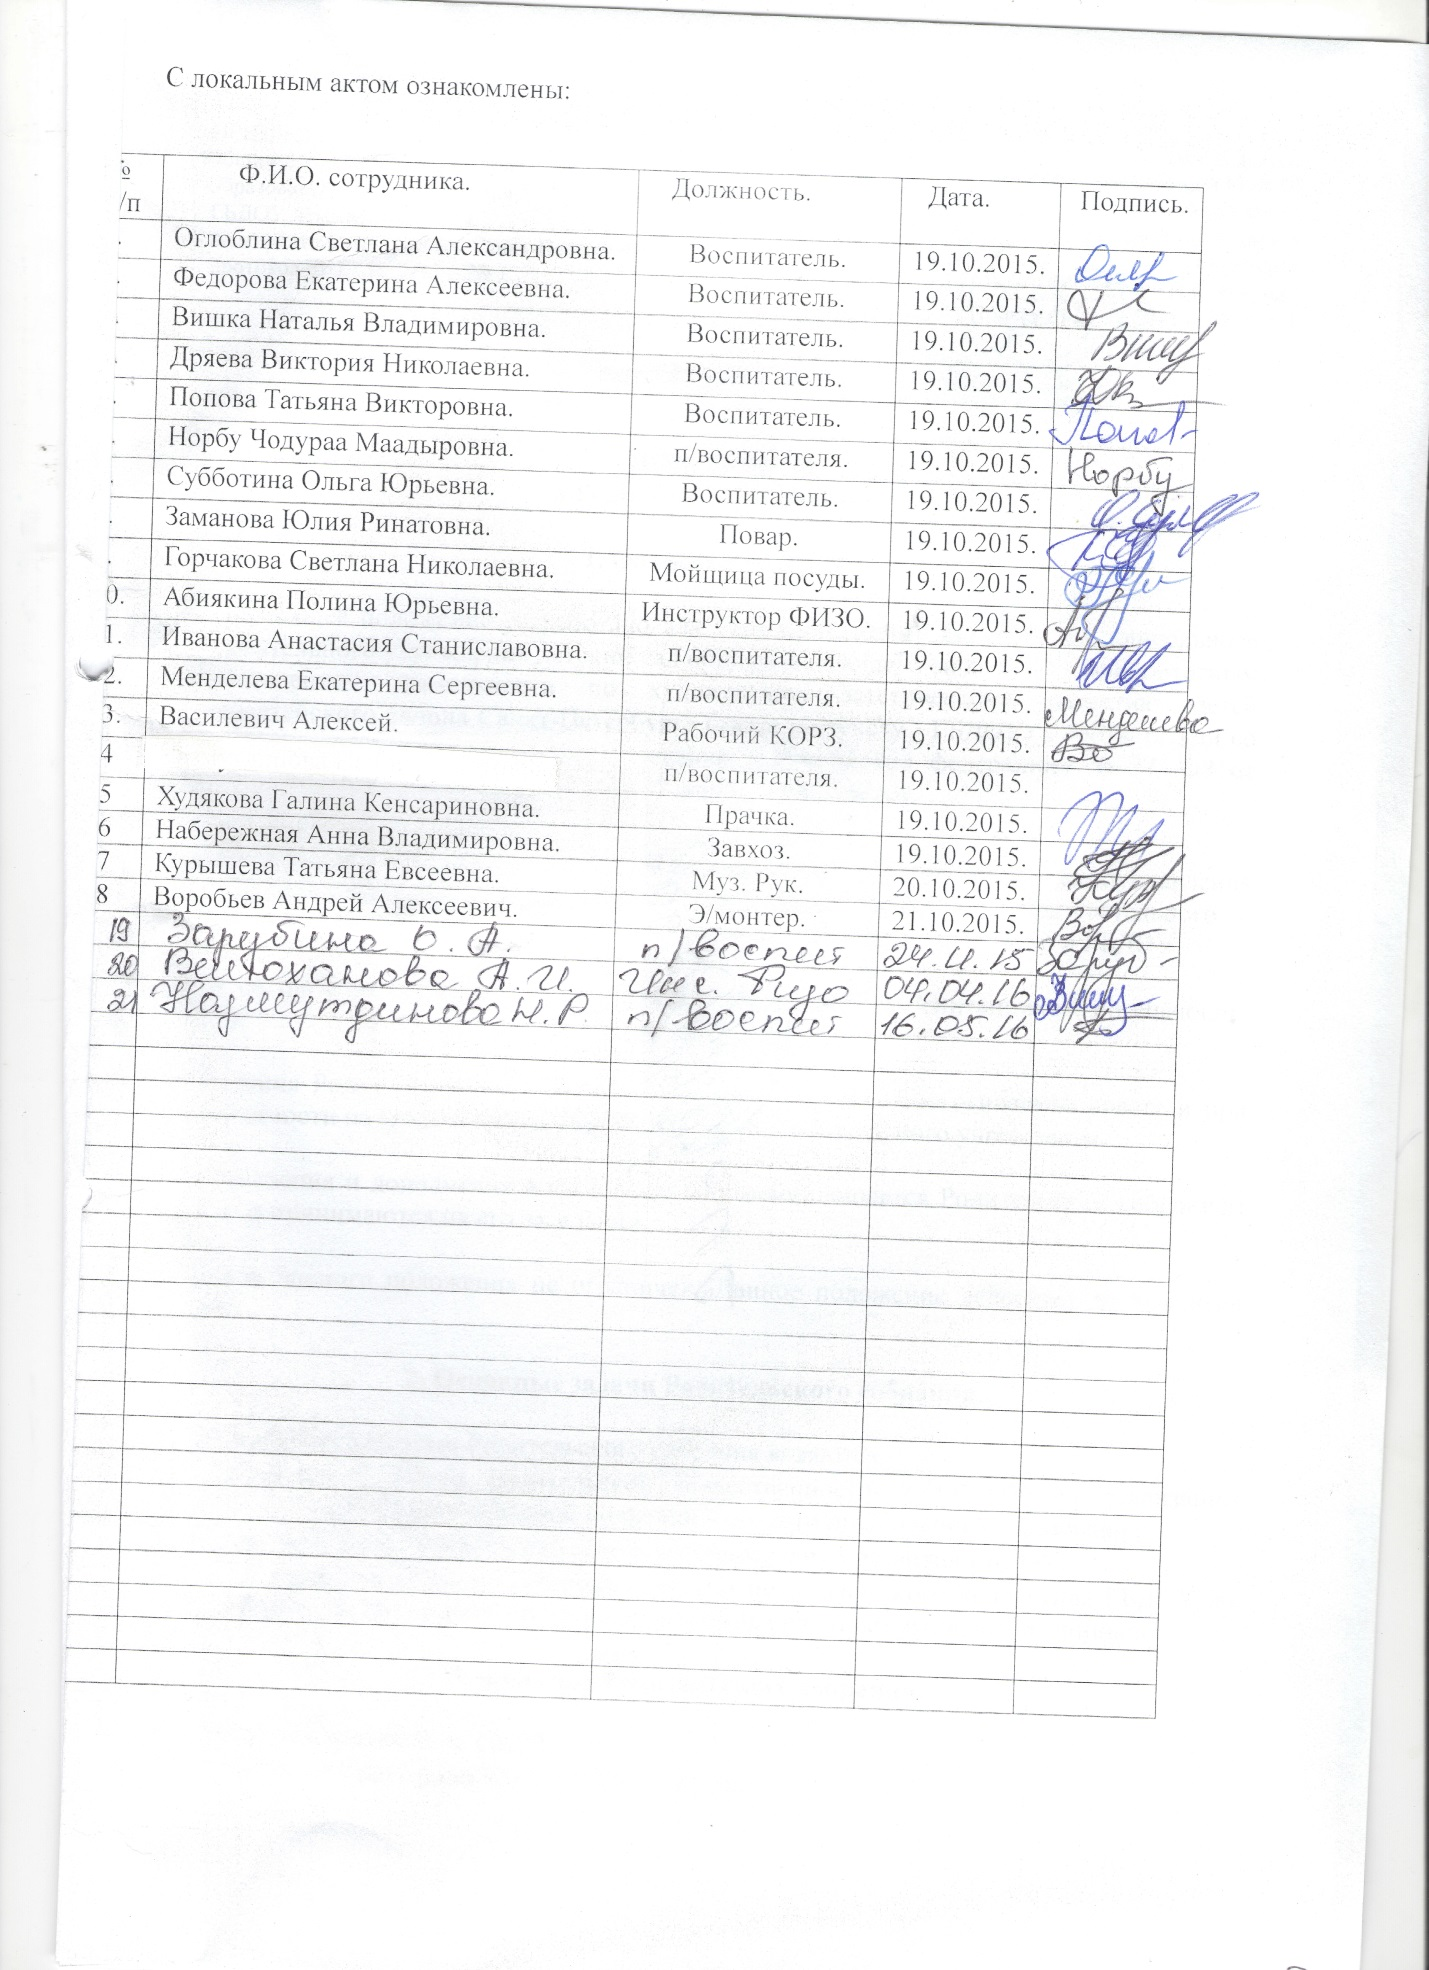 С локальным актом ознакомлены:
№ Ф.И.О. сотрудника. Должность. Дата. Подпись.
/п
. Оглоблина Светлана Александровна. Воспитатель. 19.10.2015.
. Федорова Екатерина Алексеевна. Воспитатель. 19.10.2015.
. Вишка Наталья Владимировна. Воспитатель. 19.10.2015.
. Дряева Виктория Николаевна. Воспитатель. 19.10.2015.
. Попова Татьяна Викторовна. Воспитатель. 19.10.2015.
. Норбу Чодураа Маадыровна. п/воспитателя. 19.10.2015. Норбу
. Субботина Ольга Юрьевна. Воспитатель. 19.10.2015.
. Заманова Юлия Ринатовна. Повар. 19.10.2015.
. Горчакова Светлана Николаевна. Мойщица посуды. 19.10.2015.
0. Абиякина Полина Юрьевна. Инструктор ФИЗО. 19.10.2015.
1. Иванова Анастасия Станиславовна. п/воспитателя. 19.10.2015.
2. Менделева Екатерина Сергеевна. п/воспитателя. 19.10.2015. Менделева
3. Василевич Алексей. Рабочий КОРЗ. 19.10.2015.
4 п/воспитателя. 19.10.2015.
5 Худякова Галина Кенсариновна. Прачка. 19.10.2015.
6 Набережная Анна Владимировна. Завхоз. 19.10.2015.
7 Курышева Татьяна Евсеевна. Муз. Рук. 20.10.2015.
8 Воробьев Андрей Алексеевич. Э/монтер. 21.10.2015.
19 Зарубина О. А. п/воспит 24.11.15
20 А. И. Инс. Физо 04.04.16
21 Назмутдинова Н. Р. п/воспит 16.05.16